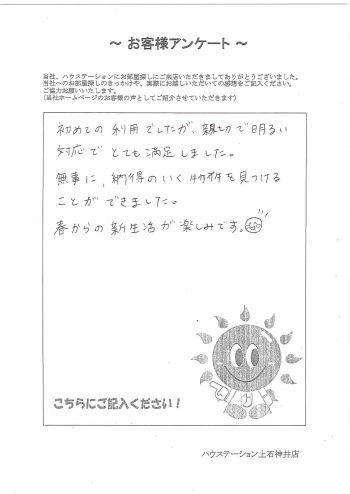 ～ お客様アンケート ～
当社、ハウステーションにお部屋探しにご来店いただきましてありがとうございました。
当社へのお部屋探しのきっかけや、実際にお越しいただいての感想をご記入ください。
ご協力お願いいたします。
(当社ホームページのお客様の声としてご紹介させていただきます)
初めての利用でしたが、親切で明るい
対応でとても満足しました。
無事に、納得のいく物件を見つける
ことができました。
春からの新生活が楽しみです。
こちらにご記入ください！
ハウステーション上石神井店